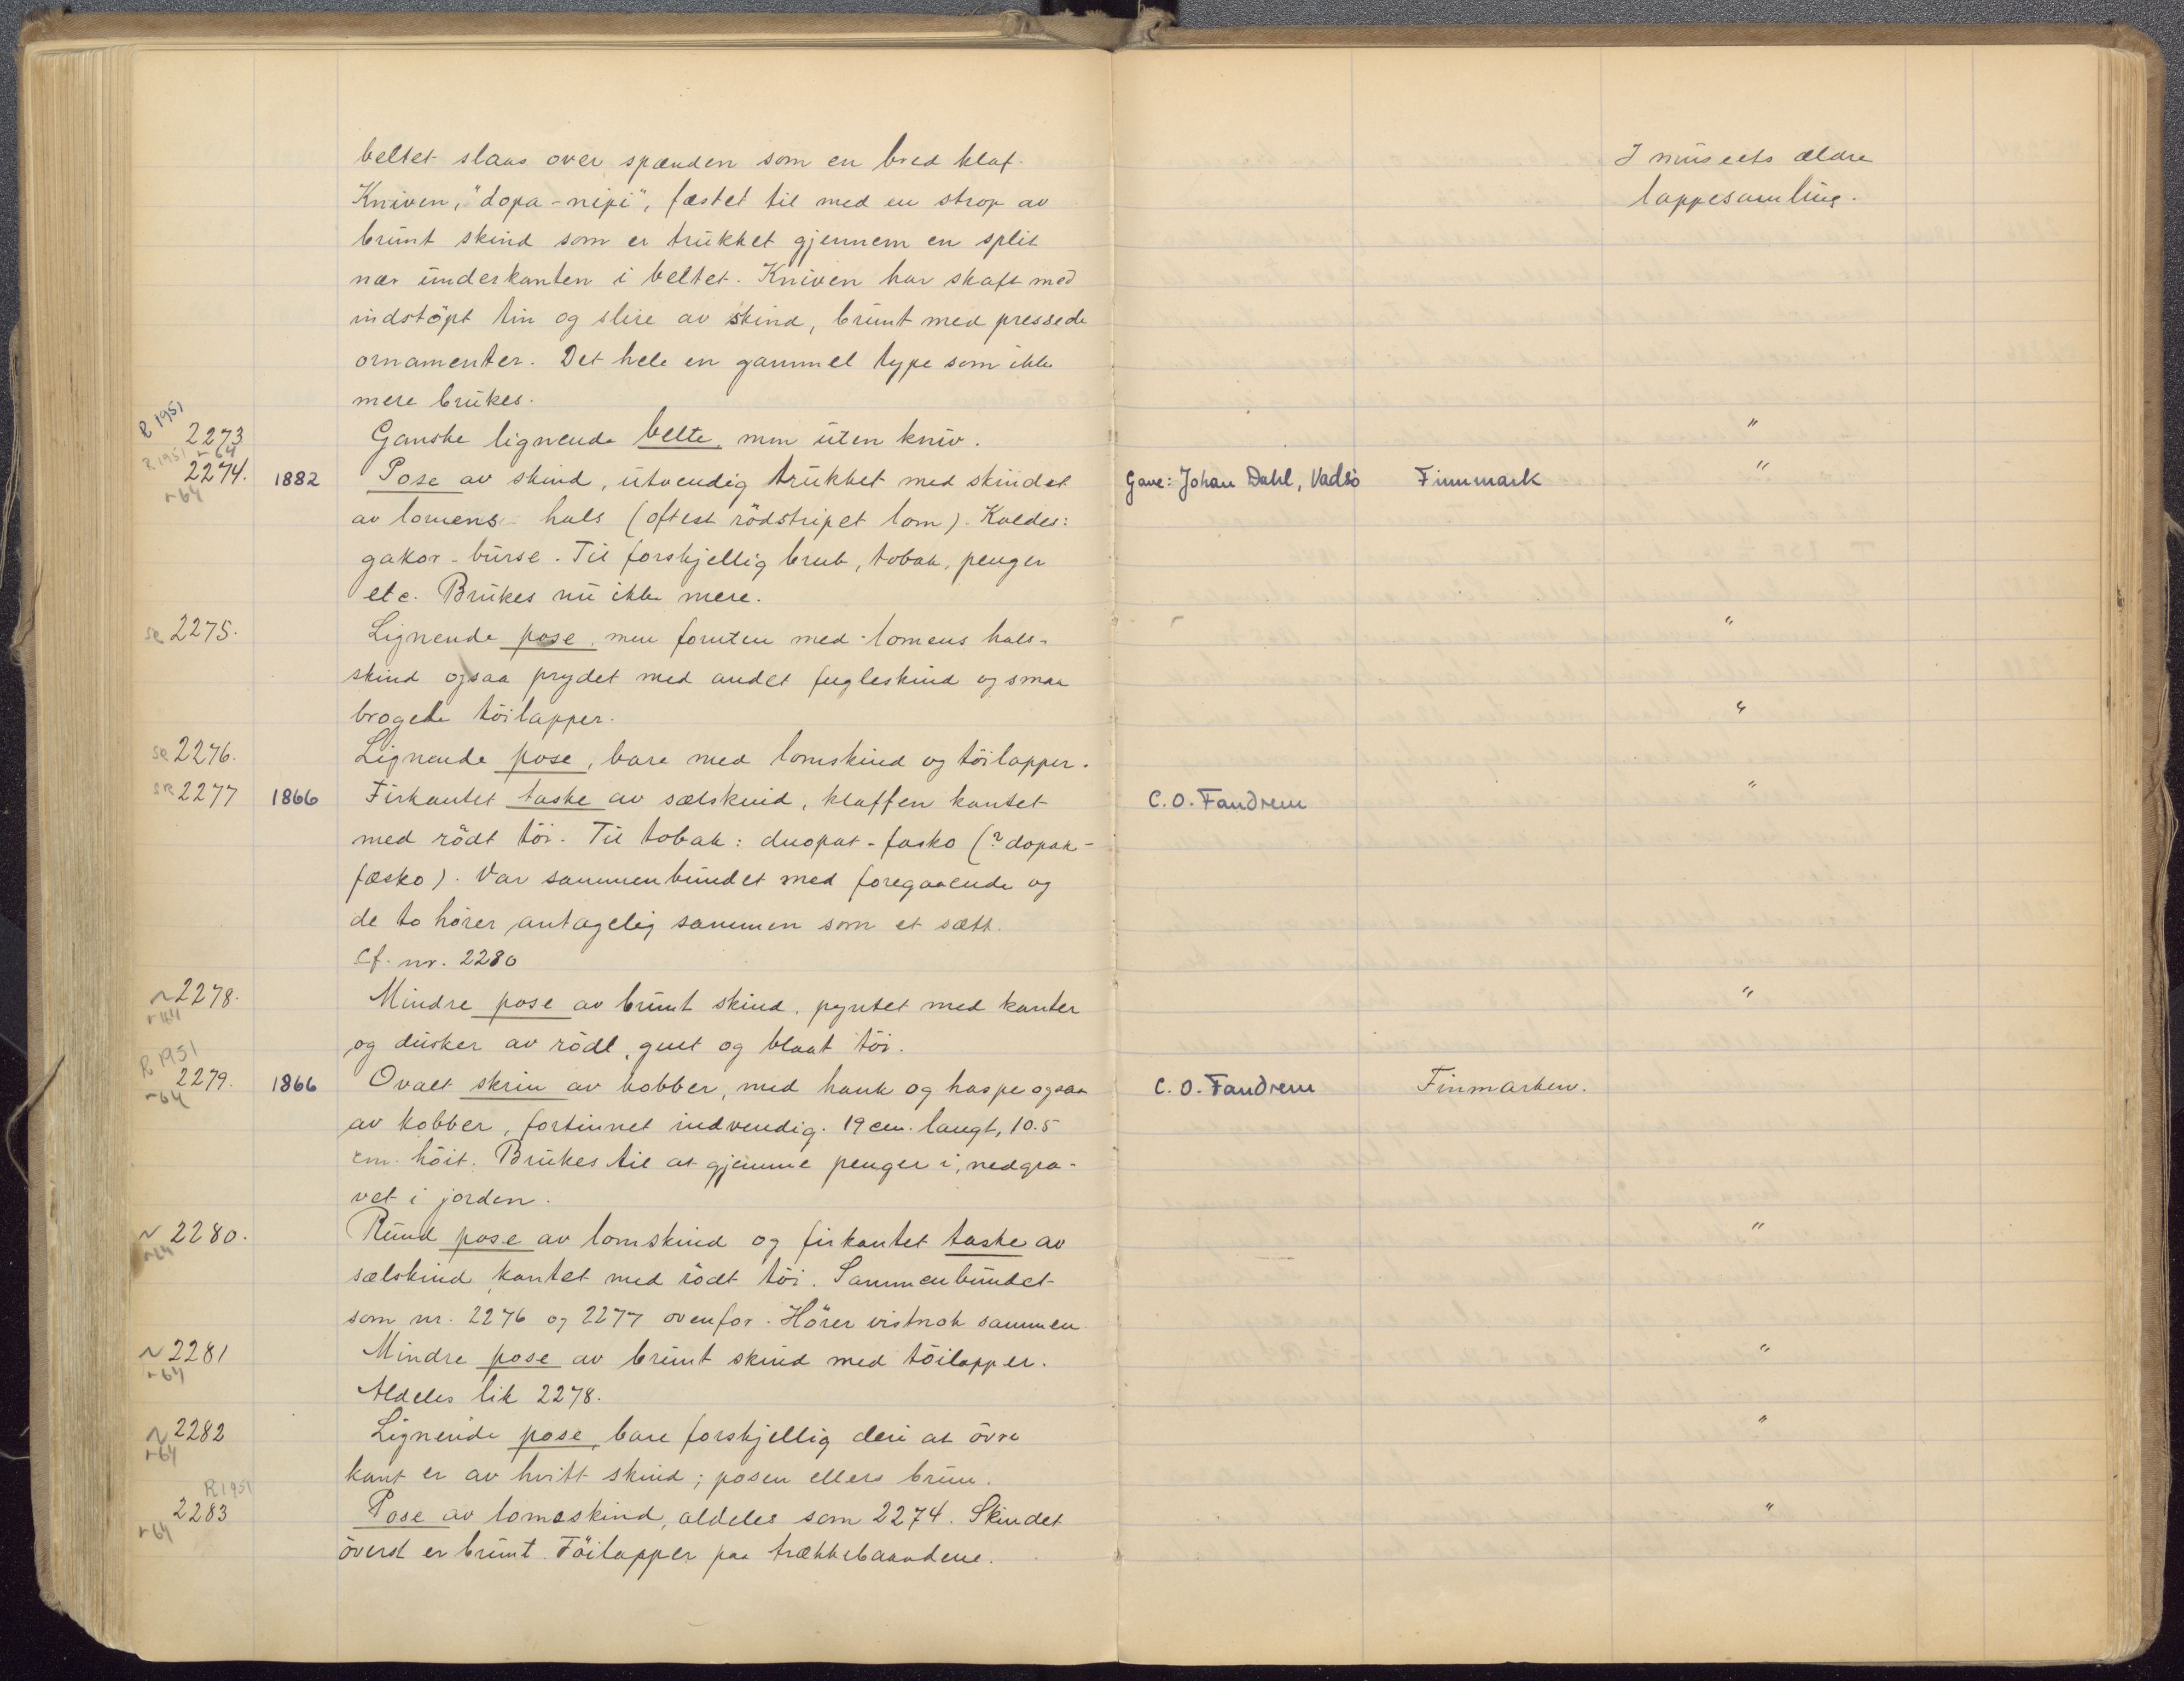 beltet slaas over spænden som en bred klaf. I museets ældre
Kniven, "dopa-nipi", fæstet til med en strop av lappesamling.
brunt skind som er trukket gjennem en split
nær underkanten i beltet. Kniven har skaft med
indstöpt tin og slire av skind, brunt med pressede
ornamenter. Det hele en gammel type som ikke
mere brukes.
R 1951
2273 Ganske lignende belte, men uten kniv. "
R 1951 r 64
2274. 1882 Pose av skind, utvendig trukket med skindet Gave: Johan Dahl, Vadsö Finnmark "
r 64
av lomens hals (oftest rödstripet lom). Kaldes:
gakor-burse. Til forskjellig bruk, tobak, penger
etc. Brukes nu ikke mere.
se 2275. Lignende pose, men foruten med lomens hals- "
skind ogsaa prydet med andet fugleskind og smaa
brogete töilapper. "
se 2276. Lignende pose, bare med lomskind og töilapper.
se 2277 1866 Firkantet taske av sælskind, klaffen kantet C. O. Fandrem "
med rödt töi. Til tobak: duopat-fasko (? dopak-
fæsko). Var sammenbundet med foregaaende og
de to hörer antagelig sammen som et sætt.
Cf. nr. 2280
2278. Mindre pose av brunt skind, pyntet med kanter "
r 64
og dusker av rödt, gult og blaat töi.
R 1951
2279. 1866 Ovalt skrin av kobber, med hank og haspe ogsaa C. O. Fandrem Finmarken.
r 64
av kobber, fortinnet indvendig. 19 cm. langt, 10.5
cm. höit. Brukes til at gjemme penger i, nedgra-
vet i jorden.
2280. Rund pose av lomskind og firkantet taske av "
r 64
sælskind kantet med rödt töi. Sammenbundet
som nr. 2276 og 2277 ovenfor. Hörer vistnok sammen.
2281 Mindre pose av brunt skind med töilapper. "
r 64
Aldeles lik 2278.
2282 Lignende pose, bare forskjellig deri at övre "
r 64
kant er av hvitt skind; posen ellers brun.
R 1951
2283 Pose av lomeskind, aldeles som 2274. Skindet "
r 64
överst er brunt. Töilapper paa trækkebaandene.